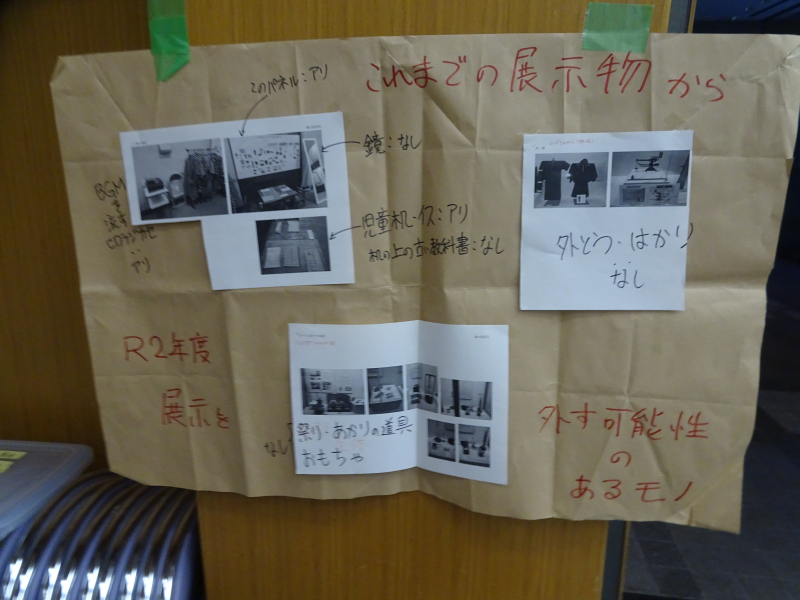 これまでの展示物から
このパネル:アリ
鏡:なし
BGM
を
流す
CDラジカセ
:
アリ
児童机・イス:アリ
机の上の古い教科書:なし
外とう・はかり
:
なし
R2年度
展示を
祭り・あかりの道具
おもちゃ
なし
外す可能性
の
あるモノ